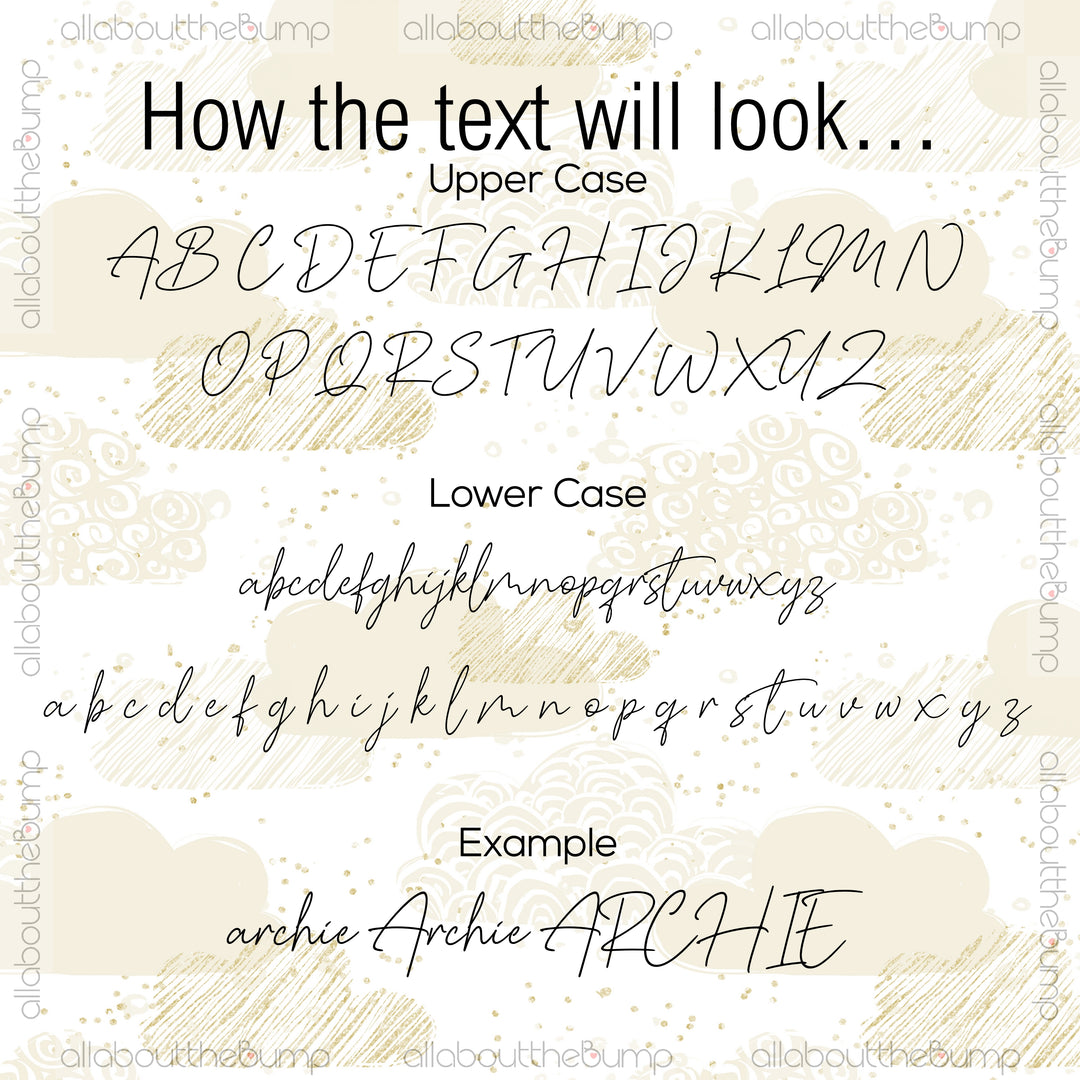 allabouttheBump allabouttheBump allabouttheBump
allabouttheBump
allabouttheBump
How the text will look...
Upper Case
ABCDEFGHIJKLMN
OPQRSTUVWXYZ
allabouttheBump
allabouttheBump
Lower Case
abcdefghijklmnopqrstuvwxyz
a b c d e f g h i j k l m n o p q r s t u v w x y z
allabouttheBump
allabouttheBump
Example
archie Archie ARCHIE
allabouttheBump allabouttheBump allabouttheBump